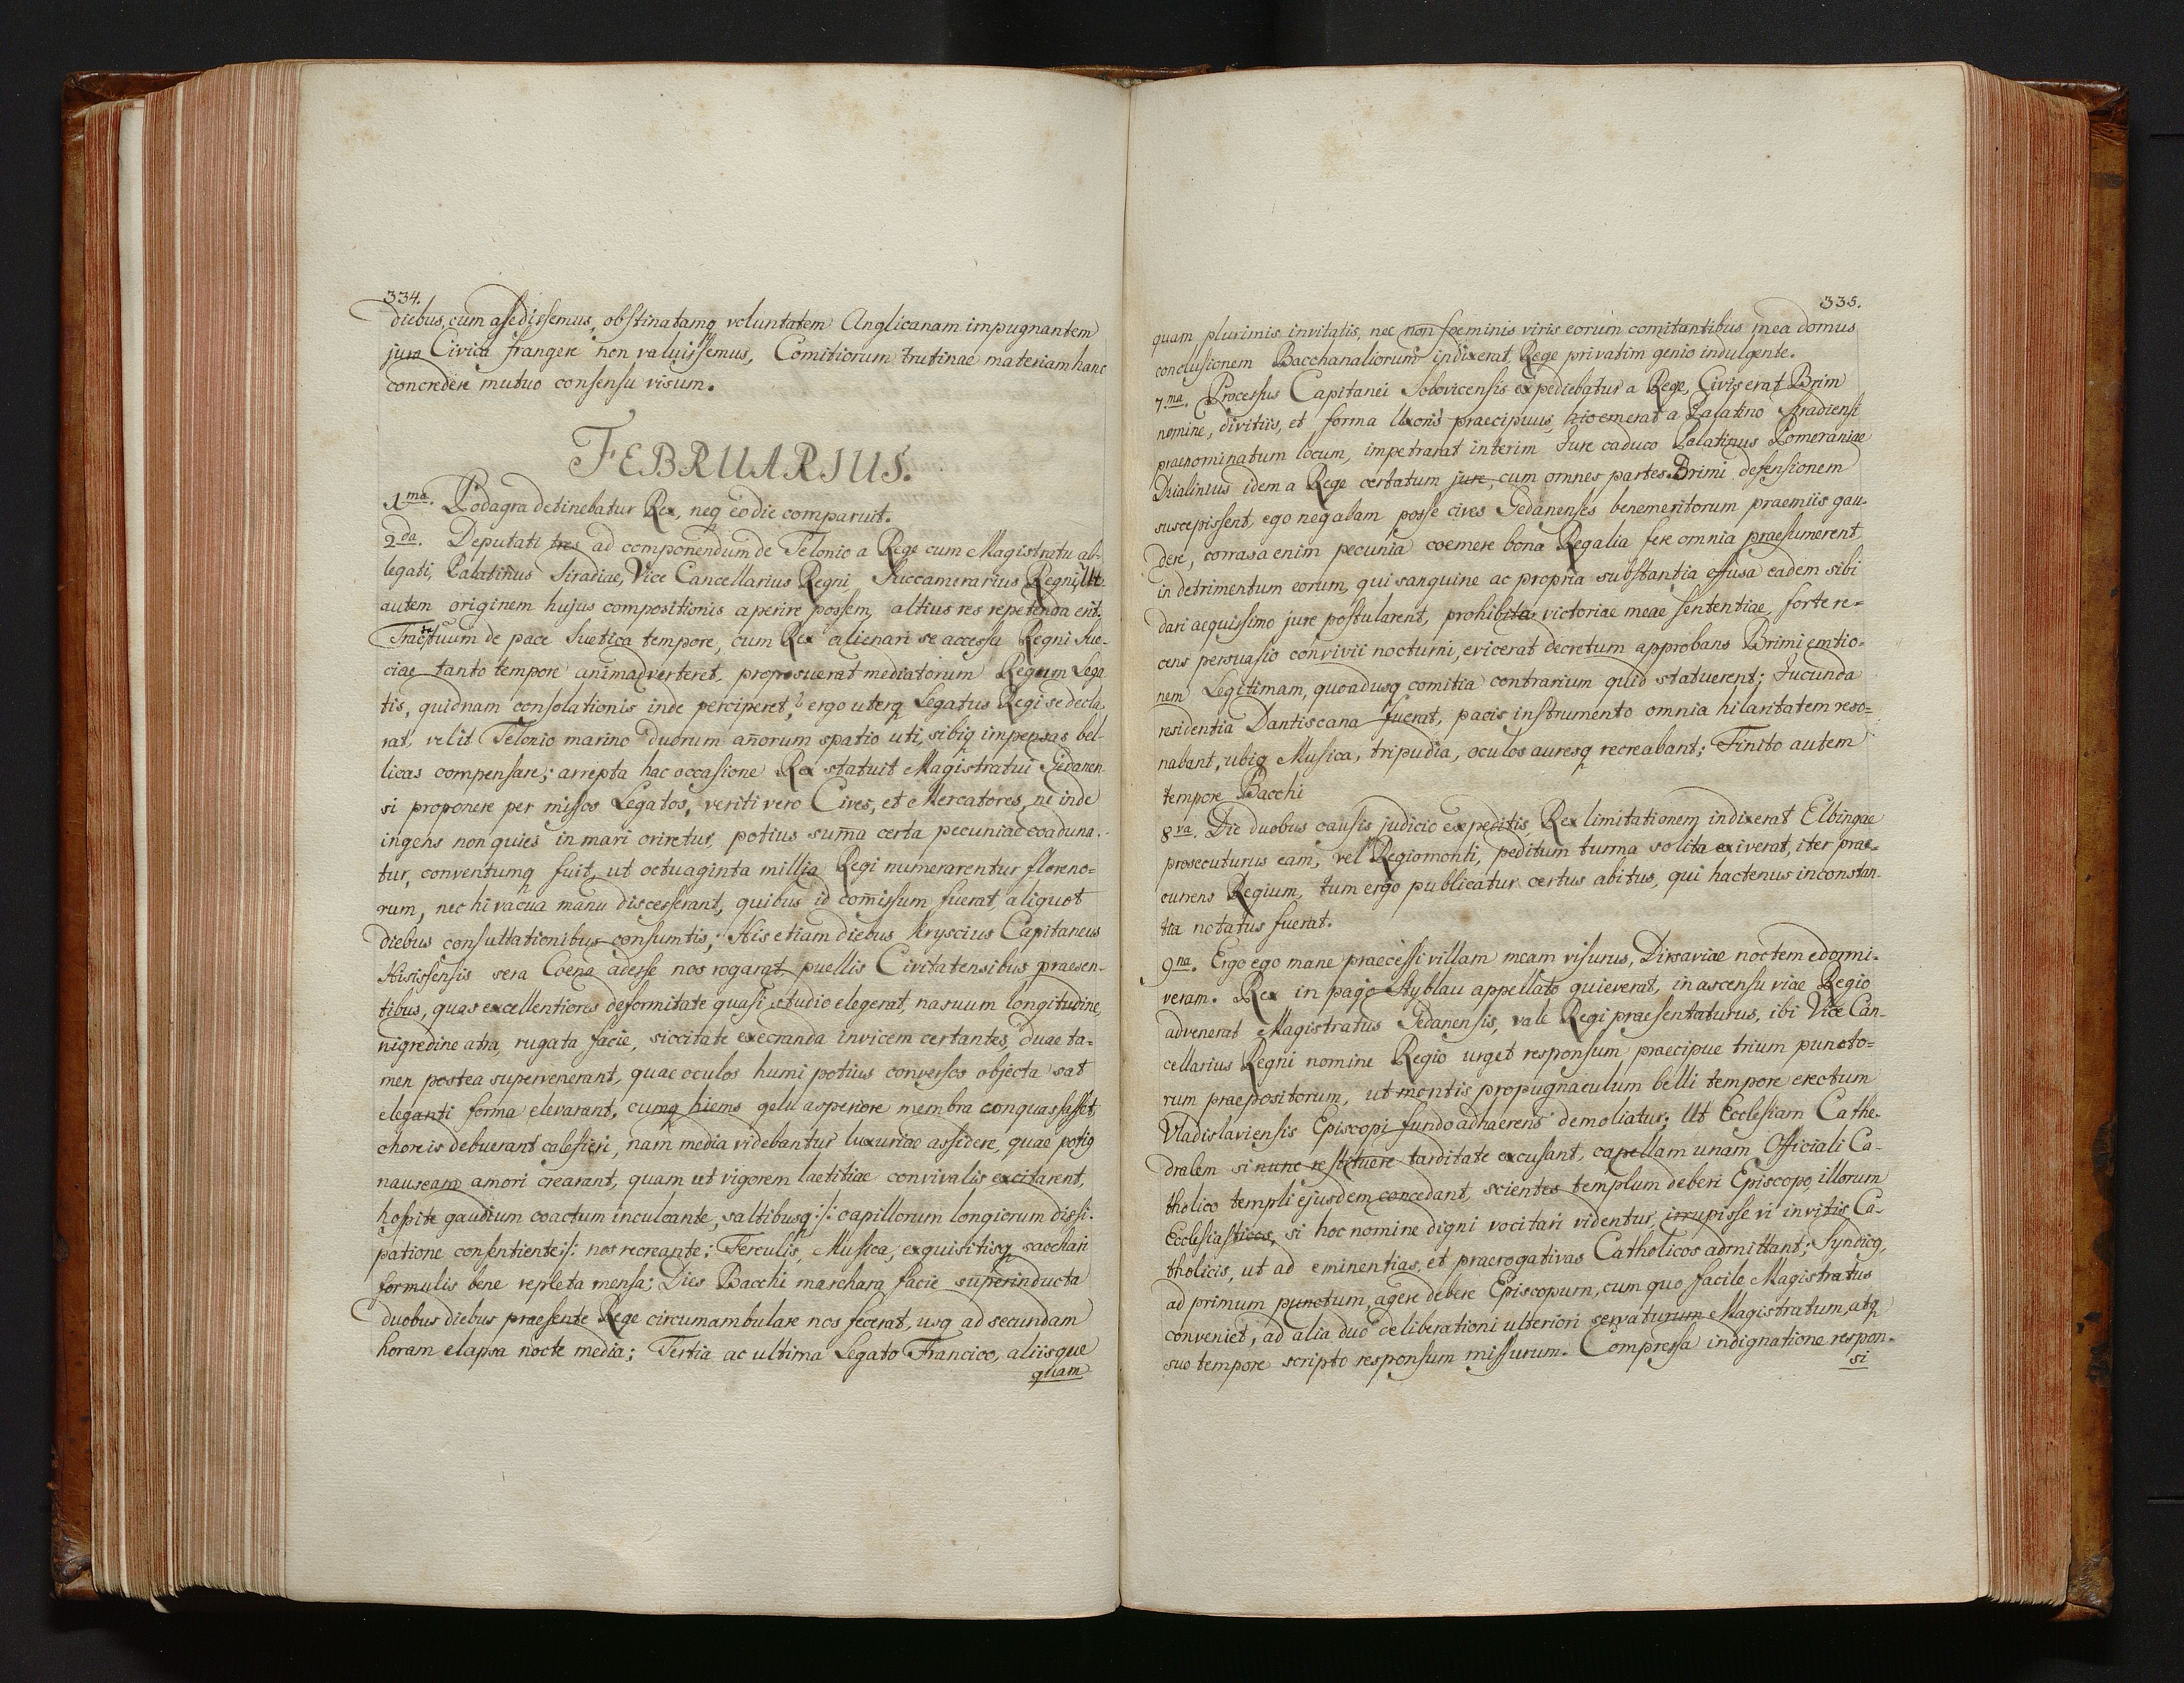 334.
diebus, cum assedissemus, obstinatamq voluntatem Anglicanam impugnantem
jura Civica frangere non valuissemus, Comitiorum trutinae materiam hanc
concredere mutuo consensu visum.
FEBRUARIUS.
1ma. Podagra detinebatur Rex, neq eo die comparuit.
2da. Deputati tres ad componendum de Telonio a Rege cum Magistratu ab-
legati, Palatinus Siradiae, Vice Cancellarius Regni, Succamerarius Regni, Ut
autem originem hujus compositionis aperire possem, altius res repetenda erit.
Tractatuum de pace Suetica tempore, cum Rex alienari se accessu Regni Sue-
ciae tanto tempore animadverteret, proposuerat mediatorum Regum Lega
tis, quidnam consolationis inde perciperet, ergo uterq Legatus Regi se decla,
rat, velit Telonio marino duorum anorum spatio uti, sibiq impensas bel-
licas compensare; arrepta hac occasione Rex statuit Magistratui Gedanen-
si proponere per missos Legatos, veriti vero Cives, et Mercatores, ne inde
ingens non quies in mari oriretur, potius suma certa pecuniae coaduna-
tur, conventumq fuit, ut octuaginta millia Regi numerarentur floreno=
rum, nec hi vacua manu discesserant, quibus id comissum fuerat, aliquot
diebus consultationibus consumtis; His etiam diebus Kryscius Capitaneus
Hisissensis sera Coena adesse nos rogarat, puellis Civitatensibus praesen-
tibus, quas excellentiores deformitate quasi studio elegerat, nasuum longitudine,
nigredine atra, rugata facie, siccitate execranda invicem certantes, duae ta=
men postea supervenerant, quae oculos humi potius conversos objecta sat
eleganti forma elevarant, cumq hiems gelu asperiore membra conquassasset,
choreis debuerant calefieri, nam media videbantur luxuriae assidere, quae potiq
nauseam amori crearant, quam ut vigorem laetitiae convivalis excitarent,
hospite gaudium coactum inculcante, saltibusq :/: capillorum longiorum dissi-
patione consentiente :/: nos recreante; Ferculis, Musica, exquisitisq sacchari
formulis bene repleta mensa; Dies Bacchi marchara facie superinducta
duobus diebus praesente Rege circumambulare nos fecerat, usq ad secundam
horam elapsa nocte media; Tertia ac ultima Legato Francico, aliisque
quam
335.
quam plurimis invitatis, nec non foeminis viris eorum comitantibus mea domus
conclusionem Bacchanaliorum indixerat, Rege privatim genio indulgente.
7.ma. Processus Capitanei Sobovicensis expediebatur a Rege, Civis erat Brim
nomine, divitiis, et forma Uxoris praecipuus, hic emerat a Palatino Siradiensi
praenominatum locum, impetrarat interim Jure caduco Palatinus Pomeraniae
Dzialinius idem a Rege certatum jure, cum omnes partes Brimi defensionem
suscepissent, ego negabam posse cives Gedanenses benemeritorum praemiis gau-
dere, corrasa enim pecunia coemere bona Regalia fere omnia praesumerent,
in detrimentum eorum, qui sanguine ac propria substantia effusa eadem sibi
dari aequissimo jure postularent, prohibita victoriae meae sententiae, forte re=
cens persuasio convivii nocturni, evicerat decretum approbans Brimi emtio-
nem Legitimam, quoadusq comitia contrarium quid statuerent; Jucunda
residentia Dantiscana fuerat, pacis instrumento omnia hilaritatem reso=
nabant, ubiq Musica, tripudia, oculos auresq recreabant; Finito autem
tempore Bacchi
8va. Die duobus causis judicio expeditis, Rex limitationem indixerat Elbingae
prosecuturus eam, vel Regiomonti, peditum turma solita exiverat, iter prae-
currens Regium, tum ergo publicatur certus abitus, qui hactenus inconstan-
tia notatus fuerat.
9na. Ergo ego mane praecessi villam meam visurus, Dirsaviae noctem edormi-
veram. Rex in pago Styblau appellato quieverat, in ascensu viae Regio
advenerat Magistratus Gedanensis, vale Regi praesentaturus, ibi Vice Can-
cellarius Regni nomine Regio urget responsum praecipue trium puncto=
rum praepositorum, ut montis propugnaculum belli tempore erectum
Vladislaviensis Episcopi fundo adhaerens demoliatur; Ut Ecclesiam Cathe-
dralem si nunc restituere tarditate excusant, capellam unam Officiali Ca-
tholico templi ejusdem concedant, scientes templum deberi Episcopo, illorum
Ecclesiasticos, si hoc nomine digni vocitari videntur, irrupisse vi invitis Ca-
tholicis, ut ad eminentias, et praerogativas Catholicos admittant; Syndicq,
ad primum punctum, agere debere Episcopum, cum quo facile Magistratus
conveniet, ad alia duo deliberationi ulteriori servaturum Magistratum, atq
suo tempore scripto responsum missurum. Compressa indignatione respon-
si